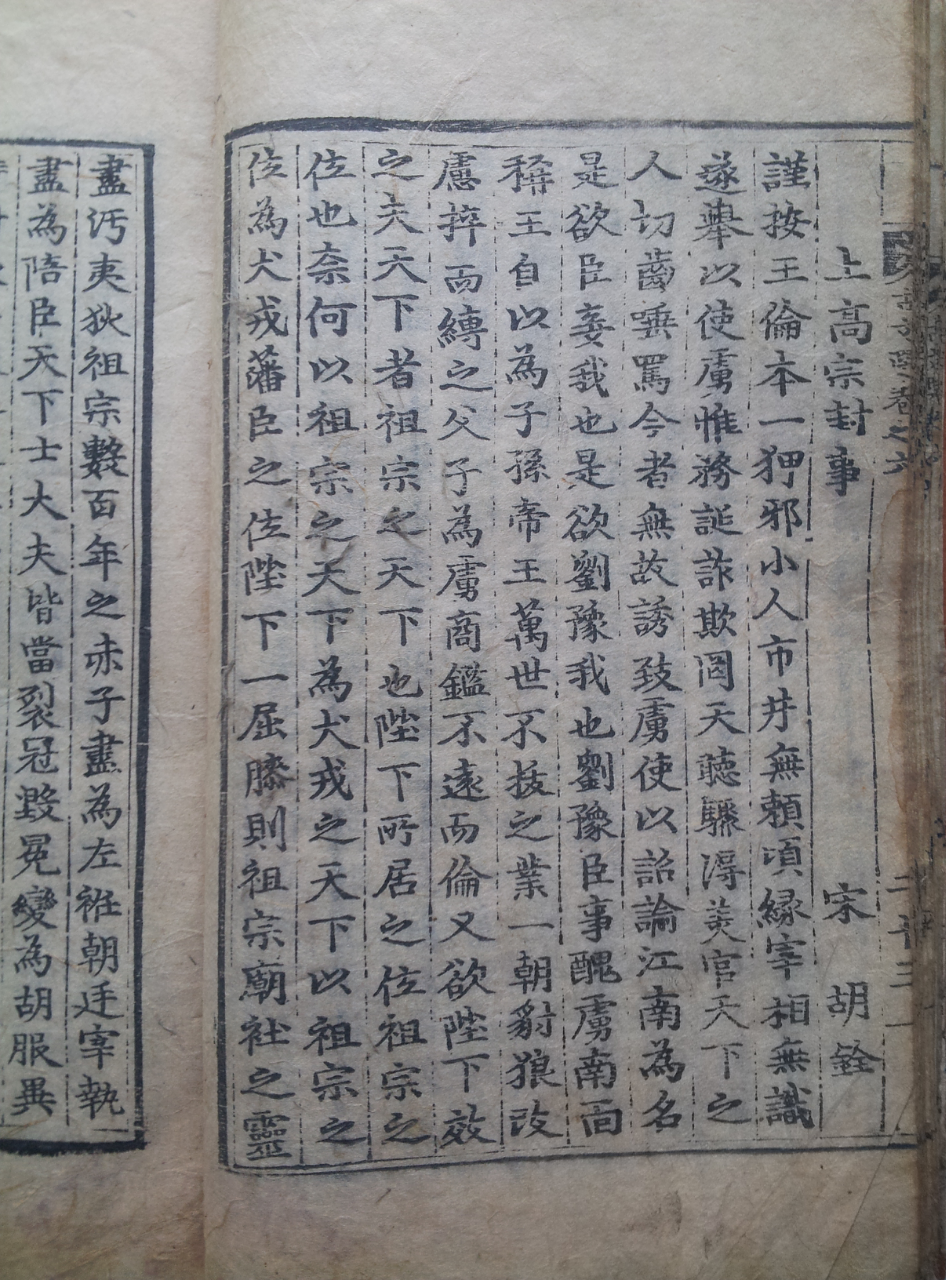 上高宗封事 宋 胡銓
謹按王倫本一狎邪小人市井無頼頃縁宰相無識
遂舉以使虜惟務誕詐欺罔天聽驟得羙官天下之
人切齒唾罵今者無故誘致虜使以詔諭江南為名
是欲臣妾我也是欲劉豫我也劉豫臣事醜虜南面
稱王自以為子孫帝王萬世不拔之業一朝豺狼改
慮捽而縛之父子為虜商鑑不遠而倫又欲陛下效
之夫天下者祖宗之天下也陛下所居之位祖宗之
位也奈何以祖宗之天下為犬戎之天下以祖宗之
位為犬戎藩臣之位陛下一屈膝則祖宗廟社之靈
盡汚夷狄祖宗數百年之赤子盡為左袵朝廷宰執
盡為陪臣天下士大夫皆當裂冠毀冕變為胡服異